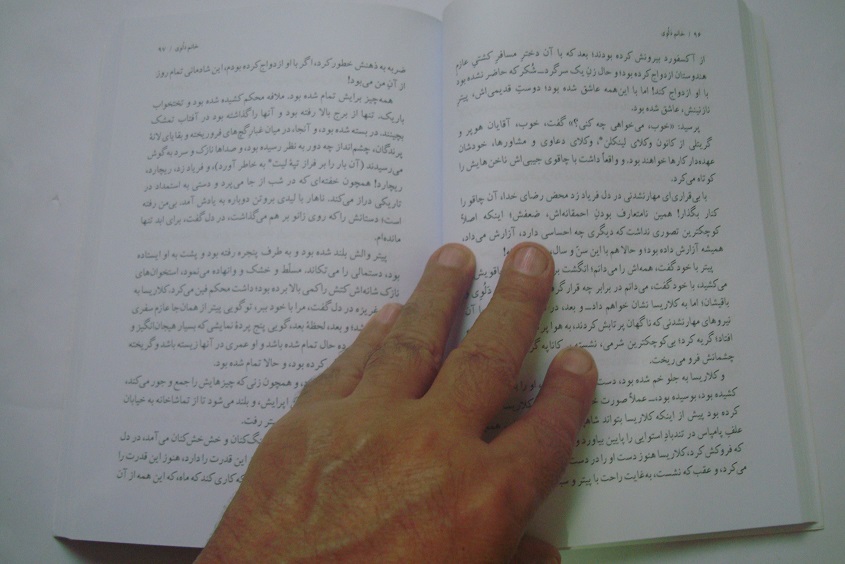 ۹۴ / خانم دلُوی
از آکسفورد بیرونش کرده بودند؛ بعد که با آن دخترِ مسافرِ کشتیِ عازمِ
هندوستان ازدواج کرده بود؛ و حال زنِ یک سرگرد ــ شُکر که حاضر نشده بود
با او ازدواج کند! اما با این‌همه عاشق شده بود؛ دوستِ قدیمی‌اش، پیترِ
نازنینش، عاشق شده بود.
پرسید: «خوب، می‌خواهی چه کنی؟» گفت، خوب، آقایان هوپر و
گریتلی از کانون وکلای لینکلن*، وکلای دعاوی و مشاورها، خودشان
عهده‌دار کارها خواهند بود. و واقعاً داشت با چاقوی جیبی‌اش ناخن‌هایش را
کوتاه می‌کرد.
با بی‌قراری‌ای مهارنشدنی در دل فریاد زد محض رضای خدا، آن چاقو را
کنار بگذار! همین نامتعارف بودنِ احمقانه‌اش، ضعفش؛ اینکه اصلاً
کوچکترین تصوری نداشت که دیگری چه احساسی دارد، آزارش می‌داد،
همیشه آزارش داده بود؛ و حالا هم با این سنّ و سال
پیتر با خود گفت، همه‌اش را می‌دانم؛ انگشت بر چاقویش
می‌کشید، با خود گفت، می‌دانم در برابر چه قرار دلُوی و
باقیشان؛ اما به کلاریسا نشان خواهم داد ــ و بعد، در آن
نیروهای مهارنشدنی که ناگهان پرتابش کردند، به هوا
افتاد؛ گریه کرد؛ بی‌کوچکترین شرمی، نشسته بر کاناپه
چشمانش فرو می‌ریخت.
و کلاریسا به جلو خم شده بود، دست او را
کشیده بود، بوسیده بود، ــ عملاً صورت کلاریسا
کرده بود پیش از اینکه کلاریسا بتواند
علفِ پامپاس در تندبادِ استوایی را پایین بیاورد و
که فروکش کرد، کلاریسا هنوز دست او را در دست
می‌کرد، و عقب که نشست، به‌غایت راحت با پیتر و
خانم دلُوی / ۹۵
ضربه به ذهنش خطور کرد، اگر با او ازدواج کرده بودم، این شادمانی تمام روز
از آنِ من می‌بود!
همه‌چیز برایش تمام شده بود. ملافه محکم کشیده شده بود و تختخواب
باریک. تنها از برج بالا رفته بود و آنها را گذاشته بود در آفتاب تمشک
بچینند. در بسته شده بود، و آنجا، در میان غبار گچ‌های فروریخته و بقایای لانهٔ
پرندگان، چشم‌انداز چه دور به نظر رسیده بود، و صداها نازک و سرد به گوش
می‌رسیدند (آن بار را بر فراز تپهٔ لیت* به خاطر آورد)، و فریاد زد، ریچارد،
ریچارد! همچون خفته‌ای که در شب از جا می‌پرد و دستی به استمداد در
تاریکی دراز می‌کند. ناهار با لیدی بروتن دوباره به یادش آمد. بی‌من رفته
است؛ دستانش را که روی زانو بر هم می‌گذاشت، در دل گفت، برای ابد تنها
مانده‌ام.
پیتر والش بلند شده بود و به طرف پنجره رفته بود و پشت به او ایستاده
بود، دستمالی را می‌تکاند. مسلّط و خشک و وانهاده می‌نمود، استخوان‌های
نازک شانه‌اش کتش را کمی بالا برده بود؛ داشت محکم فین می‌کرد. کلاریسا به
غریزه در دل گفت، مرا با خود ببر، تو گویی پیتر از همان‌جا عازم سفری
شده؛ و بعد، لحظهٔ بعد، گویی پنج پردهٔ نمایشی که بسیار هیجان‌انگیز و
حال تمام شده باشد و او عمری در آنها زیسته باشد و گریخته
کرده بود، و حالا تمام شده بود.
و همچون زنی که چیزهایش را جمع و جور می‌کند،
اپرایش، و بلند می‌شود تا از تماشاخانه به خیابان
پیتر رفت.
و خش‌خش‌کنان می‌آمد، در دل
این قدرت را دارد، هنوز این قدرت را
که کاری کند که ماه، که این همه از آن